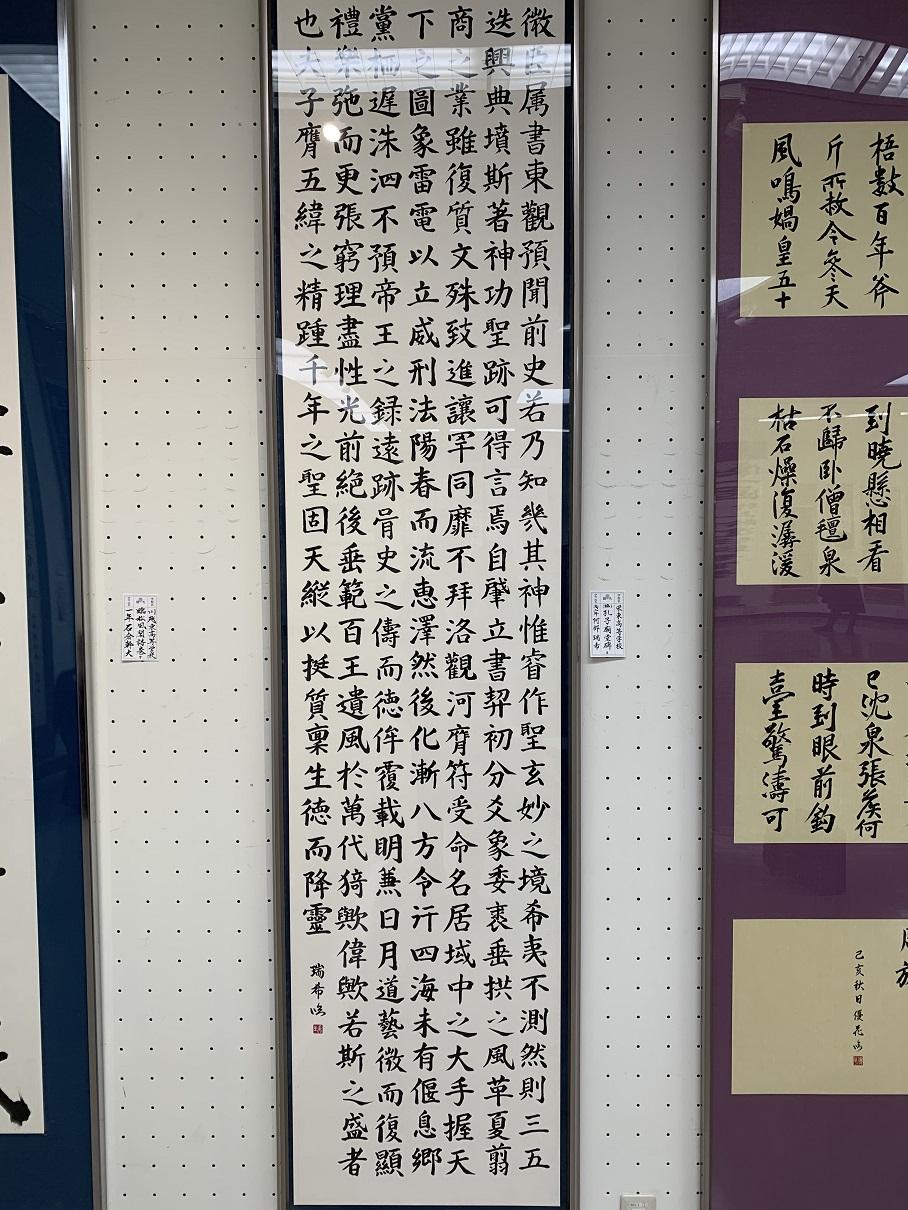 梧數百年斧
斤所赦令冬天
風鳴媧皇五十
到曉懸相看
不歸臥僧氈泉
枯石燥復潺湲
已沈泉張侯何
時到眼前釣
臺驚濤可
己亥秋日優花臨
栄東高等学校
臨孔子廟堂碑
微臣属書東觀預聞前史若乃知幾其神惟睿作聖玄妙之境希夷不測然則三五
迭興典墳斯著神功聖跡可得言焉自肇立書契初分爻象委裘垂拱之風革夏翦
商之業雖復質文殊致進讓罕同靡不拜洛觀河膺符受命名居域中之大手握天
下之圖象雷電以立威刑法陽春而流恵澤然後化漸八方令行四海未有偃息郷
黨栖遅洙泗不預帝王之録遠跡胥史之儔而徳侔覆載明兼日月道藝微而復顯
禮樂弛而更張窮理盡性光前絶後垂範百王遺風於萬代猗歟偉歟若斯之盛者
也夫子膺五緯之精踵千年之聖固天縦以挺質稟生徳而降靈
瑞希臨
川越東高等学校
臨松風閣詩巻
一年石合幹大